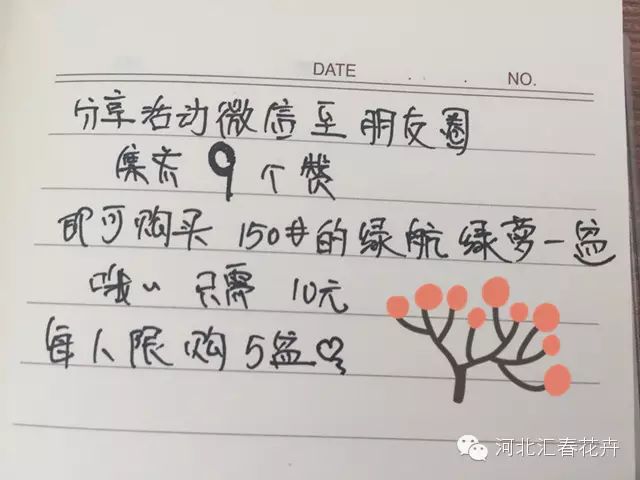 DATE
NO.
分享活动微信至朋友圈
集齐9个赞
即可购买150#的绿航绿萝一盆
哦~ 只需 10元
每人限购5盆
河北汇春花卉